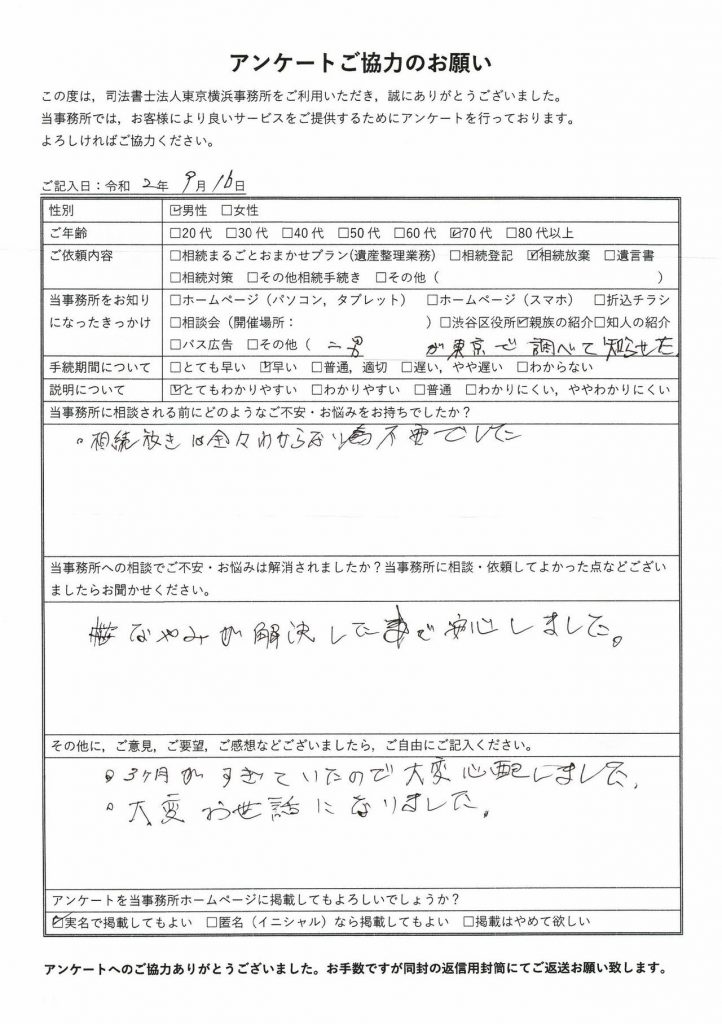 アンケートご協力のお願い
この度は，司法書士法人東京横浜事務所をご利用いただき，誠にありがとうございました。
当事務所では，お客様により良いサービスをご提供するためにアンケートを行っております。
よろしければご協力ください。
ご記入日：令和 2年 9月 16日
性別 ☑男性 □女性
ご年齢 □20代 □30代 □40代 □50代 □60代 ☑70代 □80代以上
ご依頼内容 □相続まるごとおまかせプラン(遺産整理業務) □相続登記 ☑相続放棄 □遺言書
□相続対策 □その他相続手続き □その他（ ）
当事務所をお知り □ホームページ（パソコン，タブレット） □ホームページ（スマホ） □折込チラシ
になったきっかけ □相談会（開催場所： ）□渋谷区役所☑親族の紹介□知人の紹介
□バス広告 □その他（ 二男 が東京で調べて知らせた
手続期間について □とても早い ☑早い □普通，適切 □遅い，やや遅い □わからない
説明について ☑とてもわかりやすい □わかりやすい □普通 □わかりにくい，ややわかりにくい
当事務所に相談される前にどのようなご不安・お悩みをお持ちでしたか？
。相続放きは全々わからない 不 でした
当事務所への相談でご不安・お悩みは解消されましたか？当事務所に相談・依頼してよかった点などござい
ましたらお聞かせください。
なやみが解決した で安心しました。
その他に，ご意見，ご要望，ご感想などございましたら，ご自由にご記入ください。
。3ヶ月がすぎていたので大変心配しました。
。大変お世話になりました。
アンケートを当事務所ホームページに掲載してもよろしいでしょうか？
☑実名で掲載してもよい □匿名（イニシャル）なら掲載してもよい □掲載はやめて欲しい
アンケートへのご協力ありがとうございました。お手数ですが同封の返信用封筒にてご返送お願い致します。